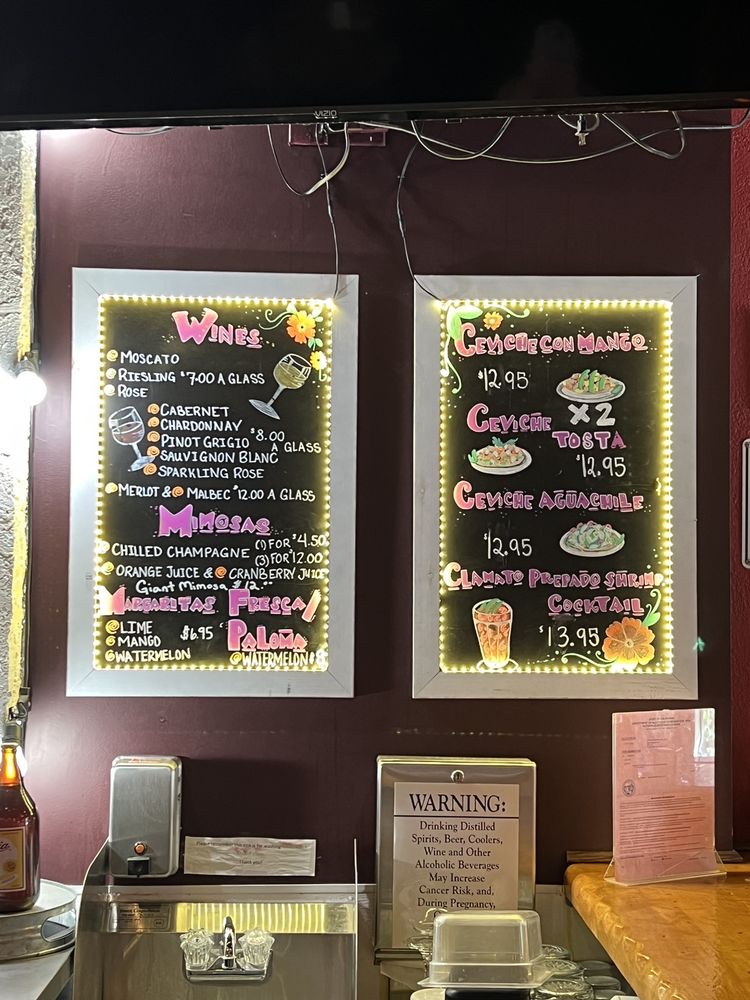 VIZIO
WINES
MOSCATO
RIESLING $7.00 A GLASS
ROSE
CABERNET
CHARDONNAY
PINOT GRIGIO $8.00
A GLASS
SAUVIGNON BLANC
SPARKLING ROSE
MERLOT & MALBEC $12.00 A GLASS
MIMOSAS
CHILLED CHAMPAGNE (1) FOR $4.50
(3) FOR $12.00
ORANGE JUICE & CRANBERRY JUICE
Giant Mimosa $12.00
MARGARITAS FRESCA/
LIME $6.95 PALOMA
MANGO
WATERMELON WATERMELON $8
CEVICHE CON MANGO
$12.95
CEVICHE X2
TOSTA
$12.95
CEVICHE AGUACHILE
$12.95
CLAMATO PREPADO SHRIMP
COCKTAIL
$13.95
Please remember this sink is for washing
Thank you!
WARNING:
Drinking Distilled
Spirits, Beer, Coolers,
Wine and Other
Alcoholic Beverages
May Increase
Cancer Risk, and,
During Pregnancy,